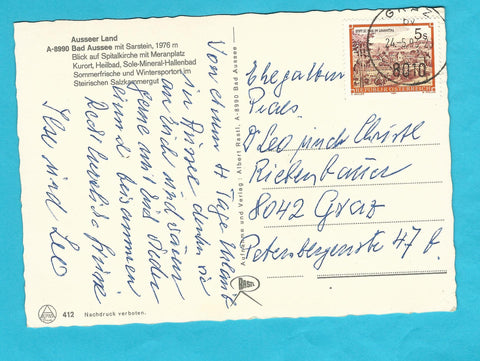 Ausseer Land
A-8990 Bad Aussee mit Sarstein, 1976 m
Blick auf Spitalkirche mit Meranplatz
Kurort, Heilbad, Sole-Mineral-Hallenbad
Sommerfrische und Wintersportort im
Steirischen Salzkammergut
Von einem 4 Tage Urlaub
in Aussee denken wir
an Euch und
gerne mit Euch wieder
beisammen
Herzliche Grüße
und Leo
412 Nachdruck verboten.
Aufnahme und Verlag: Albert Rastl, A-8990 Bad Aussee
RASTL
GRAZ
24.5.
8010
5s
REPUBLIK ÖSTERREICH
Leo und Christl
8042 Graz
Petersbergenstr 47 b.